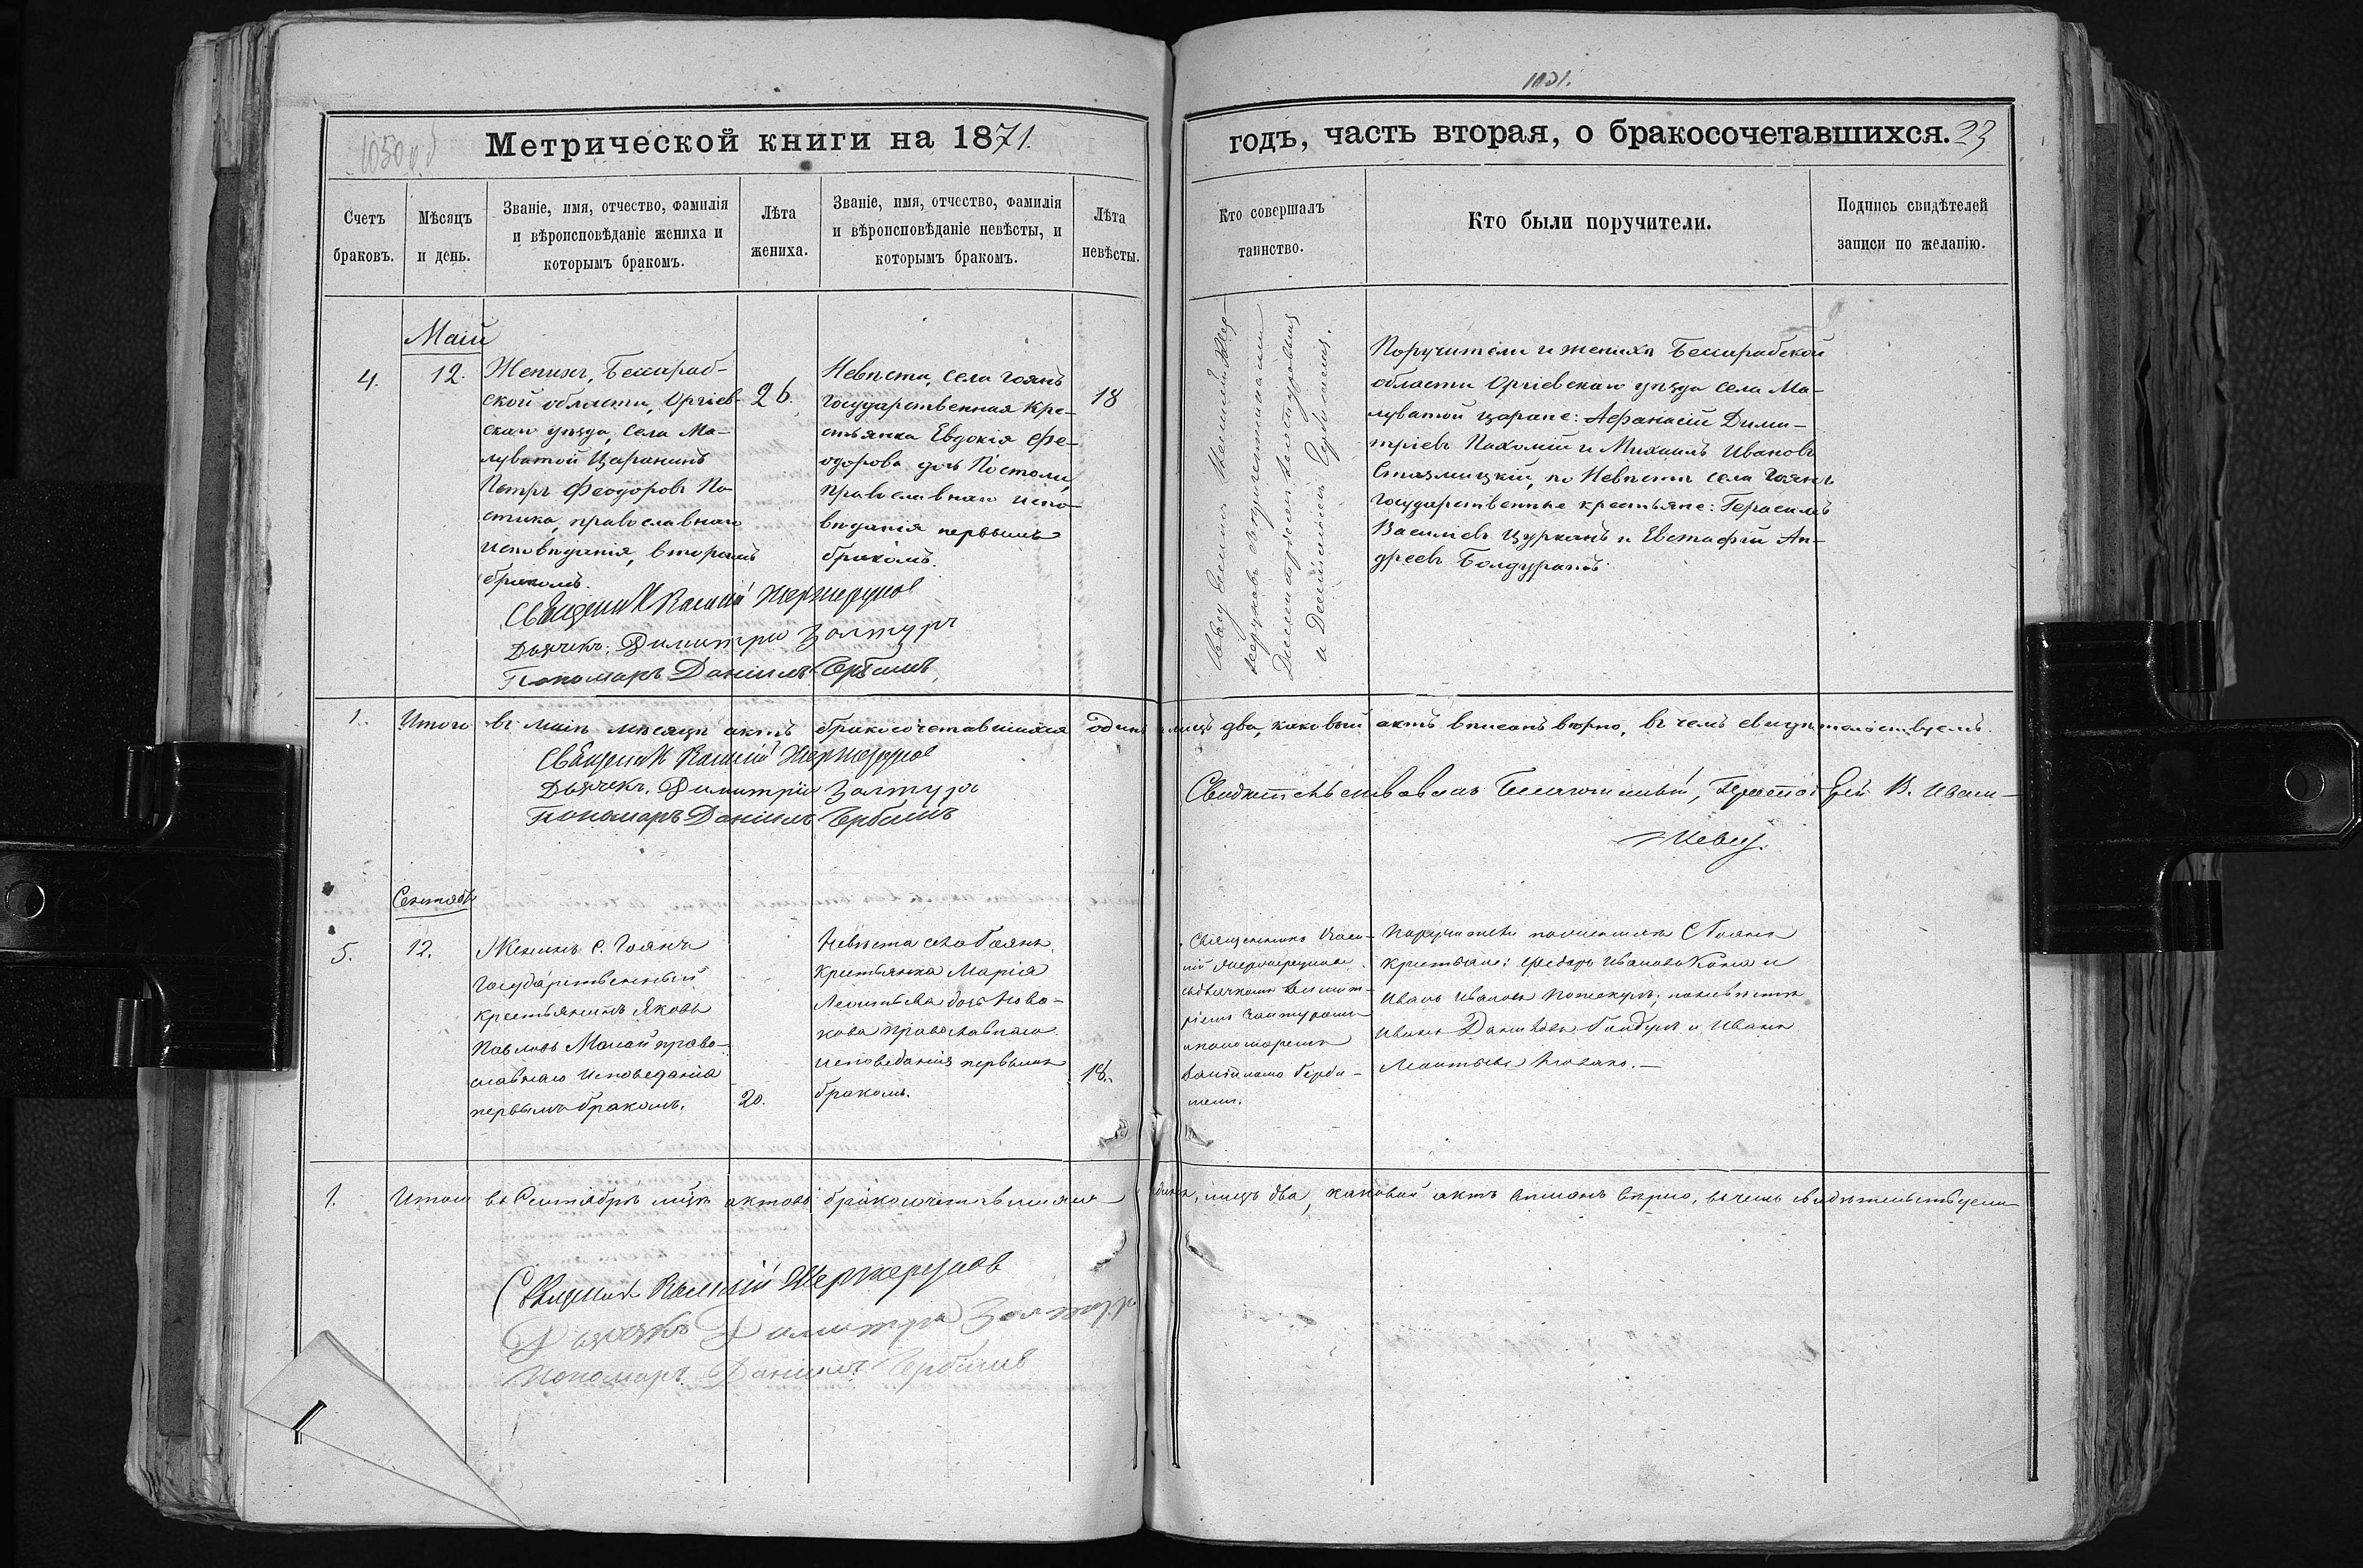 1031.
Метрической книги на 1871.
годъ, часть вторая, о бракосочетавшихся. 23
Счетъ
браковъ.
Мѣсяцъ
и день.
Званіе, имя, отчество, фамилія
и вѣроисповѣданіе жениха и
которымъ бракомъ.
Лѣта
жениха.
Званіе, имя, отчество, фамилія
и вѣроисповѣданіе невѣсты, и
которымъ бракомъ.
Лѣта
невѣсты.
Кто совершалъ
таинство.
Кто были поручители.
Подпись свидѣтелей
записи по желанію.
Маій
4.
12.
Женихъ, Бессараб-
ской области, Оргіев-
скаго уѣзда, села Ма-
луватой Царанинъ
Петръ Феодоровъ По-
стика, православнаго
исповѣданія, вторымъ
бракомъ.
26.
Невѣста, села Гоянъ
Государственная Кре-
стьянка Евдокія Фе-
одорова дочь Постоли,
православнаго испо-
вѣданія первымъ
бракомъ.
18
Димитріемъ
и Даніиломъ
Поручители и жениха Бессарабской
области Оргіевскаго уѣзда села Ма-
луватой царане: Афанасій Дими-
тріевъ Пахомій и Михаилъ Ивановъ
по Невѣсте села Гоянъ
Государственные крестьяне: Герасимъ
Василіевъ Цурканъ и Евстафій Ан-
дреевъ Болдуранъ.
Священникъ Василій
Дьячекъ. Димитри Золтуръ
Пономаръ Даніилъ
1.
Итого въ маіѣ мѣсяцѣ актъ бракосочетавшихся одинъ лицъ два, каковый актъ вписанъ вѣрно, въ чемъ свидѣтельствуемъ.
Священникъ Василій
Дьячекъ. Димитрій Золтуръ
Пономаръ Даніилъ
Свидѣтельствовалъ Благочинный, Протоіерей В.
Сентябъ
5.
12.
Женихъ с. Гоянъ
Государственный
крестьянинъ Яковъ
Павловъ Мокай право-
славнаго исповеданія
первымъ бракомъ.
20.
Невѣста села Гоянъ
Крестьянка Марія
Леонтьева дочь Нова-
кова православнаго
исповеданія первымъ
бракомъ.
18.
Священникъ Васи-
лій
съ дьячкомъ Димит-
ріемъ Золтуромъ
и пономаремъ
Даніиломъ Герби-
темъ.
Поручители по женихе с. Гоянъ
крестьяне: Федоръ Ивановъ и
Иванъ Ивановъ по невѣсте
Иванъ Даниловъ и Иванъ
Леонтьевъ Новакъ. —
1.
Итого въ Сентябрѣ мѣцѣ актовъ бракосочетавшихся одинъ, лицъ два, каковый актъ вписанъ вѣрно, въ чемъ свидѣтельствуемъ
Священникъ Василій
Дьячекъ Димитри Золтуръ
Пономаръ Даніилъ